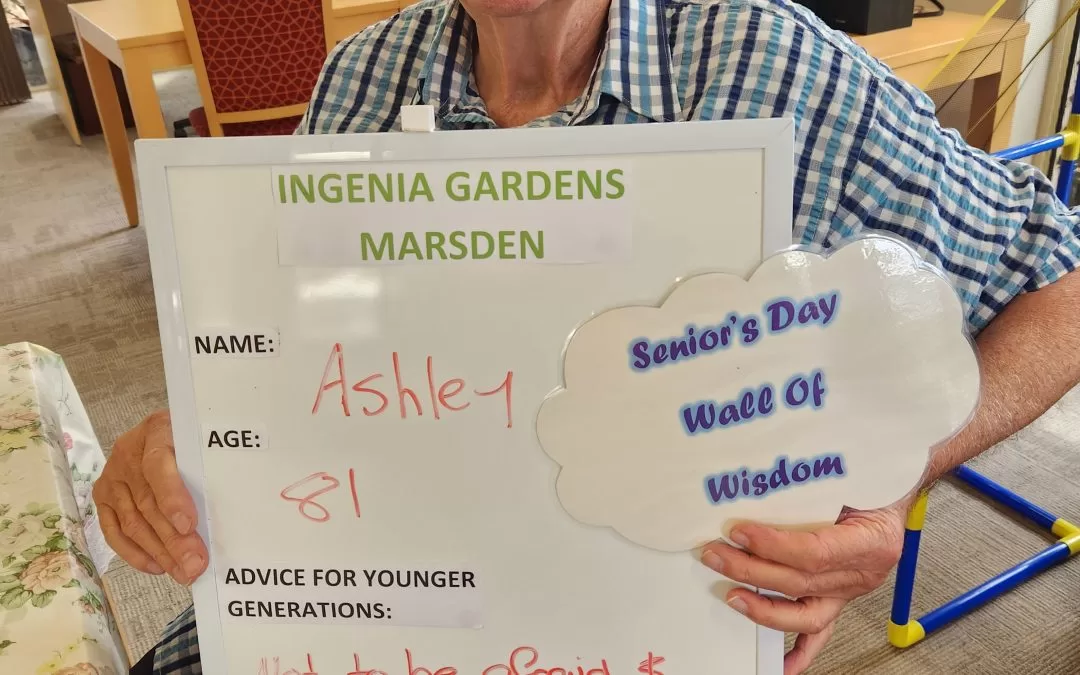 INGENIA GARDENS
MARSDEN
NAME:
Ashley
AGE:
81
ADVICE FOR YOUNGER
GENERATIONS:
Not to be afraid &
Senior's Day
Wall Of
Wisdom